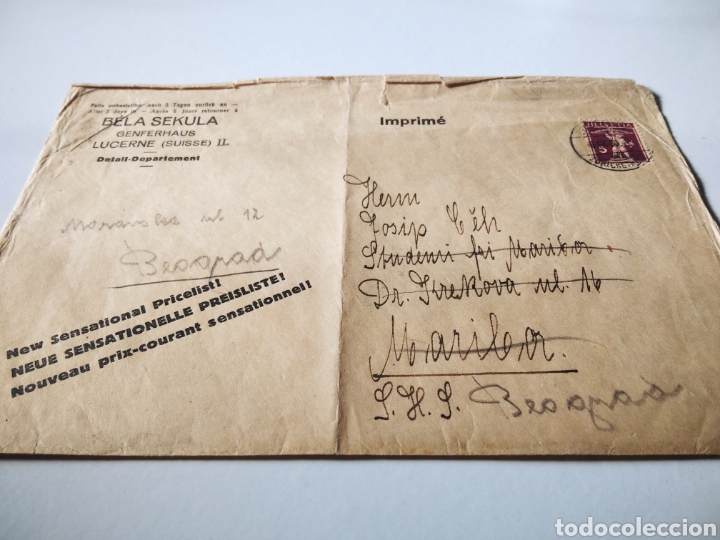 Falls unbestellbar nach 3 Tagen zurück an —
After 3 days to — Après 3 jours retourner à
BÉLA SEKULA
GENFERHAUS
LUCERNE (SUISSE) II.
Detail-Departement
Imprimé
HELVETIA
Herrn
Josip Čeh
Studenci Maribor
Dr. Krekova ul. 16
Maribor.
S.H.S. Beograd
ul. 12
Beograd
New Sensational Pricelist!
NEUE SENSATIONELLE PREISLISTE!
Nouveau prix-courant sensationnel!
todocoleccion